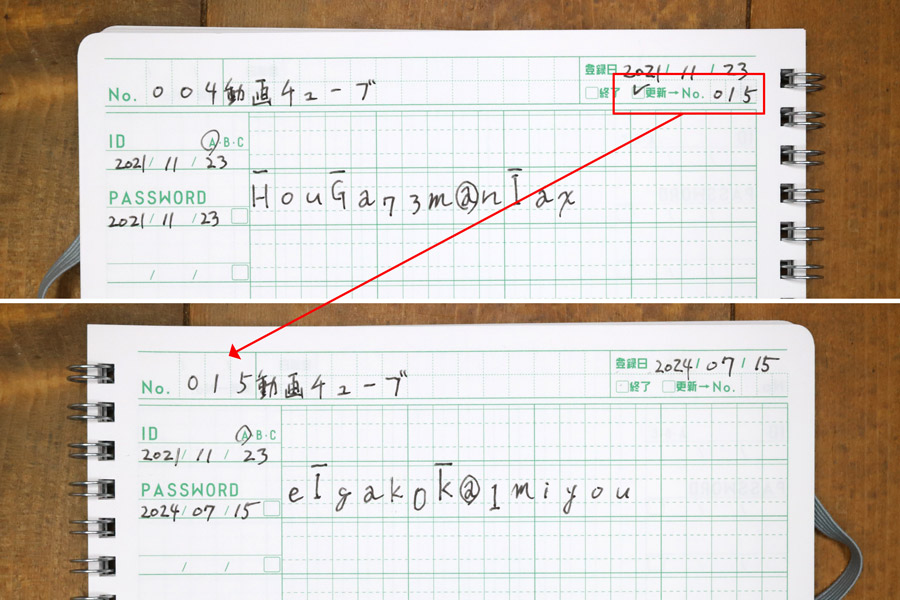 登録日 2021/ 11 / 23
No. 004 動画チューブ
終了 ✓更新→No. 015
ID A・B・C
2021/ 11 / 23
PASSWORD
HouGa73m@nIax
2021/ 11 / 23
/ /
登録日 2024/ 07 / 15
No. 015 動画チューブ
終了 更新→No.
ID A B・C
2021/ 11 / 23
PASSWORD
eIgakoK@1miyou
2024/ 07 / 15
/ /